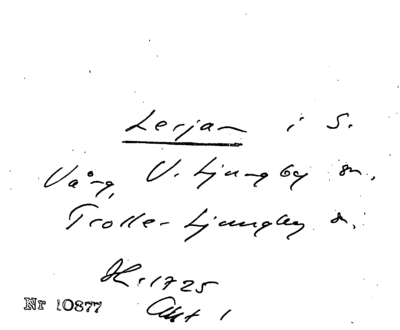 Lerjan i S.
Vång, V. Ljungby sn,
Trolle-Ljungby s.
H. 1725
Akt 1
Nr 10877